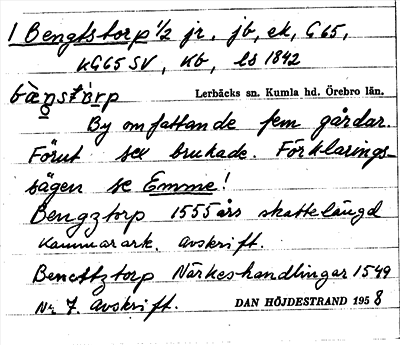 1 Bengtstorp 1/2 jr, jb, ek, G65,
KG65 SV, Kb, ls 1842
bæ̀nstɒrp Lerbäcks sn. Kumla hd. Örebro län.
By omfattande fem gårdar.
Förut sex brukade. Förklarings-
sägen se Emme!
Bengztorp 1555 års skattelängd
Kammarark. avskrift.
Benctztorp Närkeshandlingar 1549
Nr 7. avskrift. DAN HÖJDESTRAND 1958